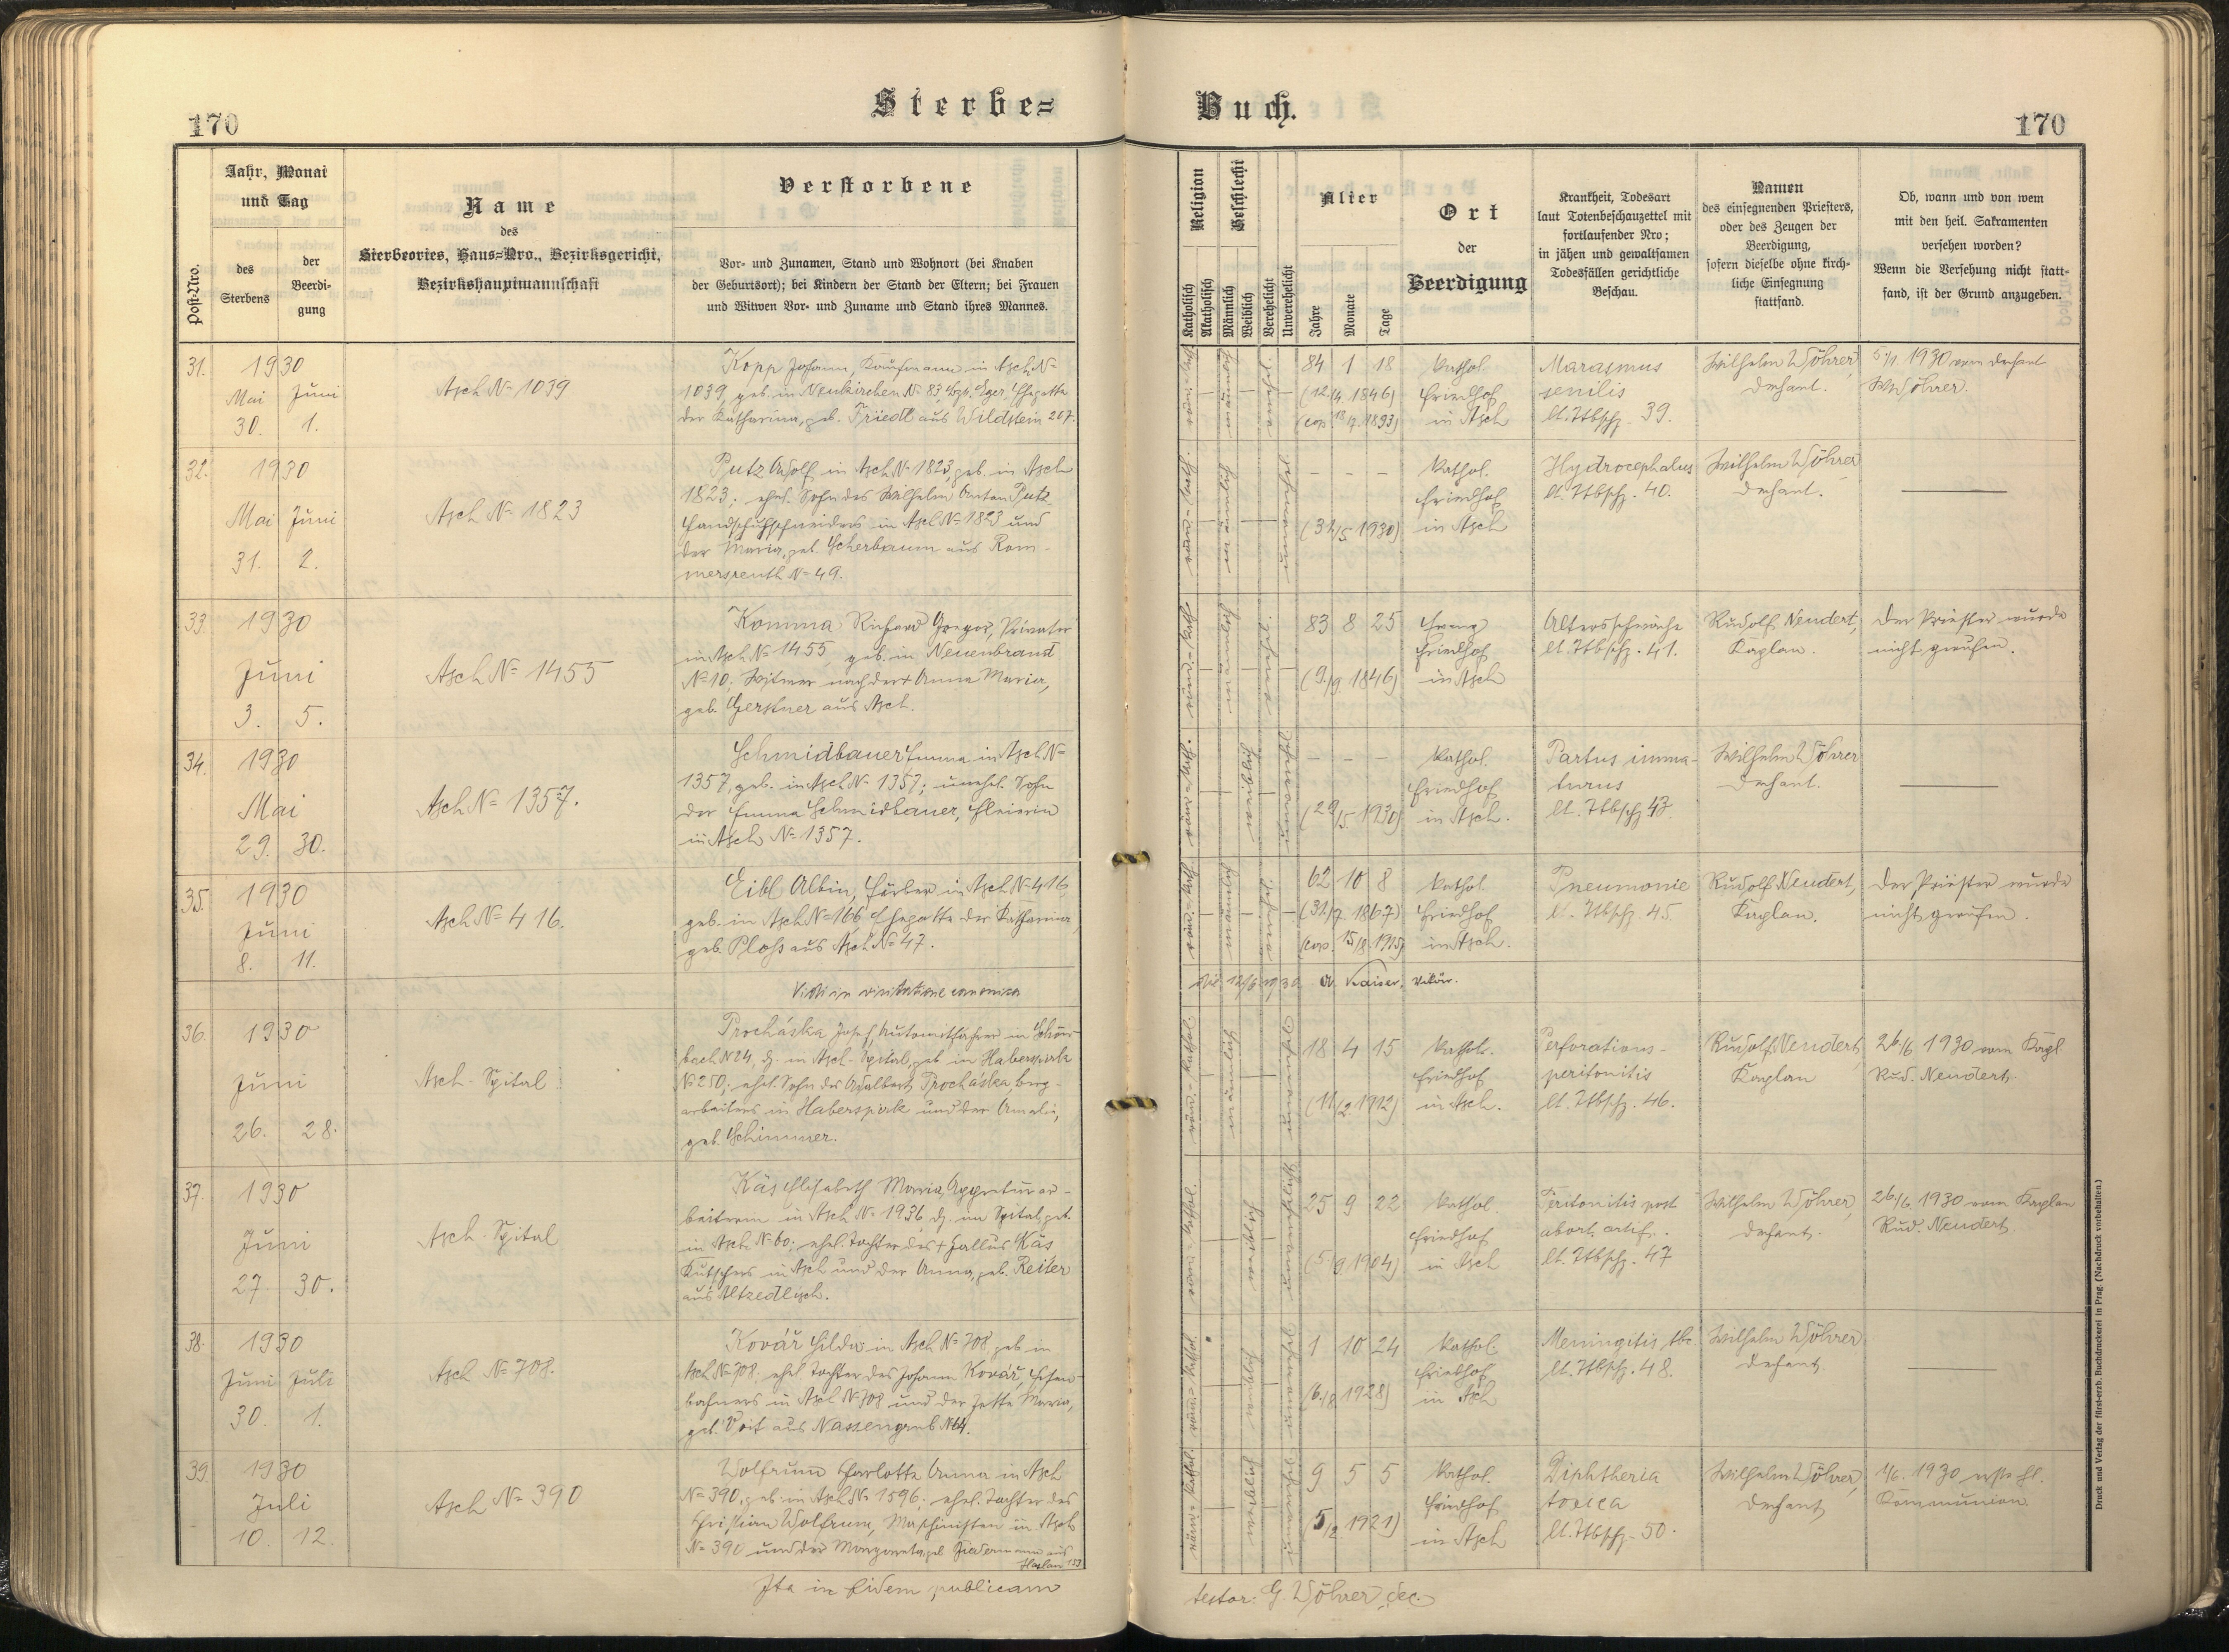 Sterbe=
Buch.
170
170
Post-Nro.
Jahr, Monat
und Tag
des
Sterbens
der
Beerdi-
gung
Name
des
Sterbeortes, Haus=Nro., Bezirksgericht,
Bezirkshauptmannschaft
Verstorbene
Vor- und Zunamen, Stand und Wohnort (bei Knaben
der Geburtsort); bei Kindern der Stand der Eltern; bei Frauen
und Witwen Vor- und Zuname und Stand ihres Mannes.
Religion
Katholisch
Akatholisch
Geschlecht
Männlich
Weiblich
Verehelicht
Unverehelicht
Alter
Jahre
Monate
Tage
Ort
der
Beerdigung
Krankheit, Todesart
laut Totenbeschauzettel mit
fortlaufender Nro;
in jähen und gewaltsamen
Todesfällen gerichtliche
Beschau.
Namen
des einsegnenden Priesters,
oder des Zeugen der
Beerdigung,
sofern dieselbe ohne kirch-
liche Einsegnung
stattfand.
Ob, wann und von wem
mit den heil. Sakramenten
versehen worden?
Wenn die Versehung nicht statt-
fand, ist der Grund anzugeben.
31.
1930
Mai Juni
30. 1.
Asch № 1039
Kopp Johann, Kaufmann in Asch №
1039, geb. in Neukirchen № 83, Bzh. Eger, Ehegatte
der Katharina, geb. Friedl aus Wildstein 267.
84 1 18
(12/4. 1846)
(cop. 18/7. 1893)
kathol.
Friedhof
in Asch
Marasmus
senilis
lt. Ttbschz. 39.
Wilhelm Wöhrer,
Dechant.
5./1. 1930 vom Dechant
W. Wöhrer.
32.
1930
Mai Juni
31. 2.
Asch № 1823
Putz Adolf in Asch № 1823, geb. in Asch
1823; ehel. Sohn des Wilhelm Anton Putz
Handschuhschneiders in Asch № 1823 und
der Maria, geb. Scherbaum aus Rom-
mersreuth № 49.
- - -
(31/5. 1930)
kathol.
Friedhof
in Asch
Hydrocephalus
lt. Ttbschz. 40.
Wilhelm Wöhrer
Dechant.
33.
1930
Juni
3. 5.
Asch № 1455
Komma Richard Gregor, Privatier
in Asch № 1455, geb. in Neuenbrand
№ 10, Witwer nach der + Anna Maria,
geb. Gerstner aus Asch.
83 8 25
(9./9. 1846)
Friedhof
in Asch
Altersschwäche
lt. Ttbschz. 41.
Rudolf Neudert,
Kaplan.
Der Priester wurde
nicht gerufen.
34.
1930
Mai
29. 30.
Asch № 1357.
Schmidbauer Emma in Asch №
1357, geb. in Asch № 1357; unehel. Sohn
der Emma Schmidbauer,
in Asch № 1357.
- - -
(29/5. 1930)
kathol.
Friedhof
in Asch.
Partus imma-
turus
lt. Ttbschz. 43.
Wilhelm Wöhrer
Dechant.
35.
1930
Juni
8. 11.
Asch № 416.
Eibl Albin, Färber in Asch № 416,
geb. in Asch № 166, Ehegatte der Katharina
geb. Ploß aus Asch № 47.
62 10 8
(31./7. 1867)
(cop. 15/8. 1915)
kathol.
Friedhof
in Asch.
Pneumonie
lt. Ttbschz. 45.
Rudolf Neudert,
Kaplan.
Der Priester wurde
nicht gerufen.
Vidi in visitatione canonica
die 12/6 1930 A. Kaiser, Vikär.
36.
1930
Juni
26. 28.
Asch - Spital
Procháska Josef, in Schön-
bach № 24, dz. in Asch-Spital, geb. in Haberspirk
№ 250; ehel. Sohn des Adalbert Procháska, Berg-
arbeiters in Haberspirk und der Amalie,
geb. Schimmer.
18 4 15
(11/2. 1912)
kathol.
Friedhof
in Asch.
Perforations-
peritonitis
lt. Ttbschz. 46.
Rudolf Neudert,
Kaplan
26./6 1930 vom Kapl.
Rud. Neudert.
37.
1930
Juni
27. 30.
Asch - Spital
Käs Elisabeth Maria, Appreturar-
beiterin in Asch № 1936, dz. im Spital, geb.
in Asch № 60; ehel. Tochter des + Gallus Käs
Kutschers in Asch und der Anna, geb. Reiter
aus Altzedlisch.
25 9 22
(5./9. 1904)
kathol.
Friedhof
in Asch
Peritonitis post
abort. artif.
lt. Ttbschz. 47
Wilhelm Wöhrer,
Dechant.
26./6. 1930 vom Kaplan
Rud. Neudert
38.
1930
Juni Juli
30. 1.
Asch № 708.
Kovář Hilda in Asch № 708, geb. in
Asch № 708; ehel. Tochter des Johann Kovář, Eisen-
bahners in Asch № 708 und der Jette Maria,
geb. Voit aus Nassengrub № 64.
1 10 24
(6./8. 1928)
kathol.
Friedhof
in Asch
Meningitis tbc.
lt. Ttbschz. 48.
Wilhelm Wöhrer
Dechant
39.
1930
Juli
10. 12.
Asch № 390
Wolfrum Charlotte Anna in Asch
№ 390, geb. in Asch № 1596; ehel. Tochter des
Christian Wolfrum, Maschinisten in Asch
№ 390 und der Margareta, geb. Biedermann aus
Haslau 153
9 5 5
(5/2. 1921)
kathol.
Friedhof
in Asch
Diphtheria
toxica
lt. Ttbschz. 50.
Wilhelm Wöhrer,
Dechant
1/6. 1930 erste hl.
Kommunion.
Ita in fidem publicam
testor: G. Wöhrer, dec.
Druck und Verlag der fürst-erzb. Buchdruckerei in Prag. (Nachdruck vorbehalten.)